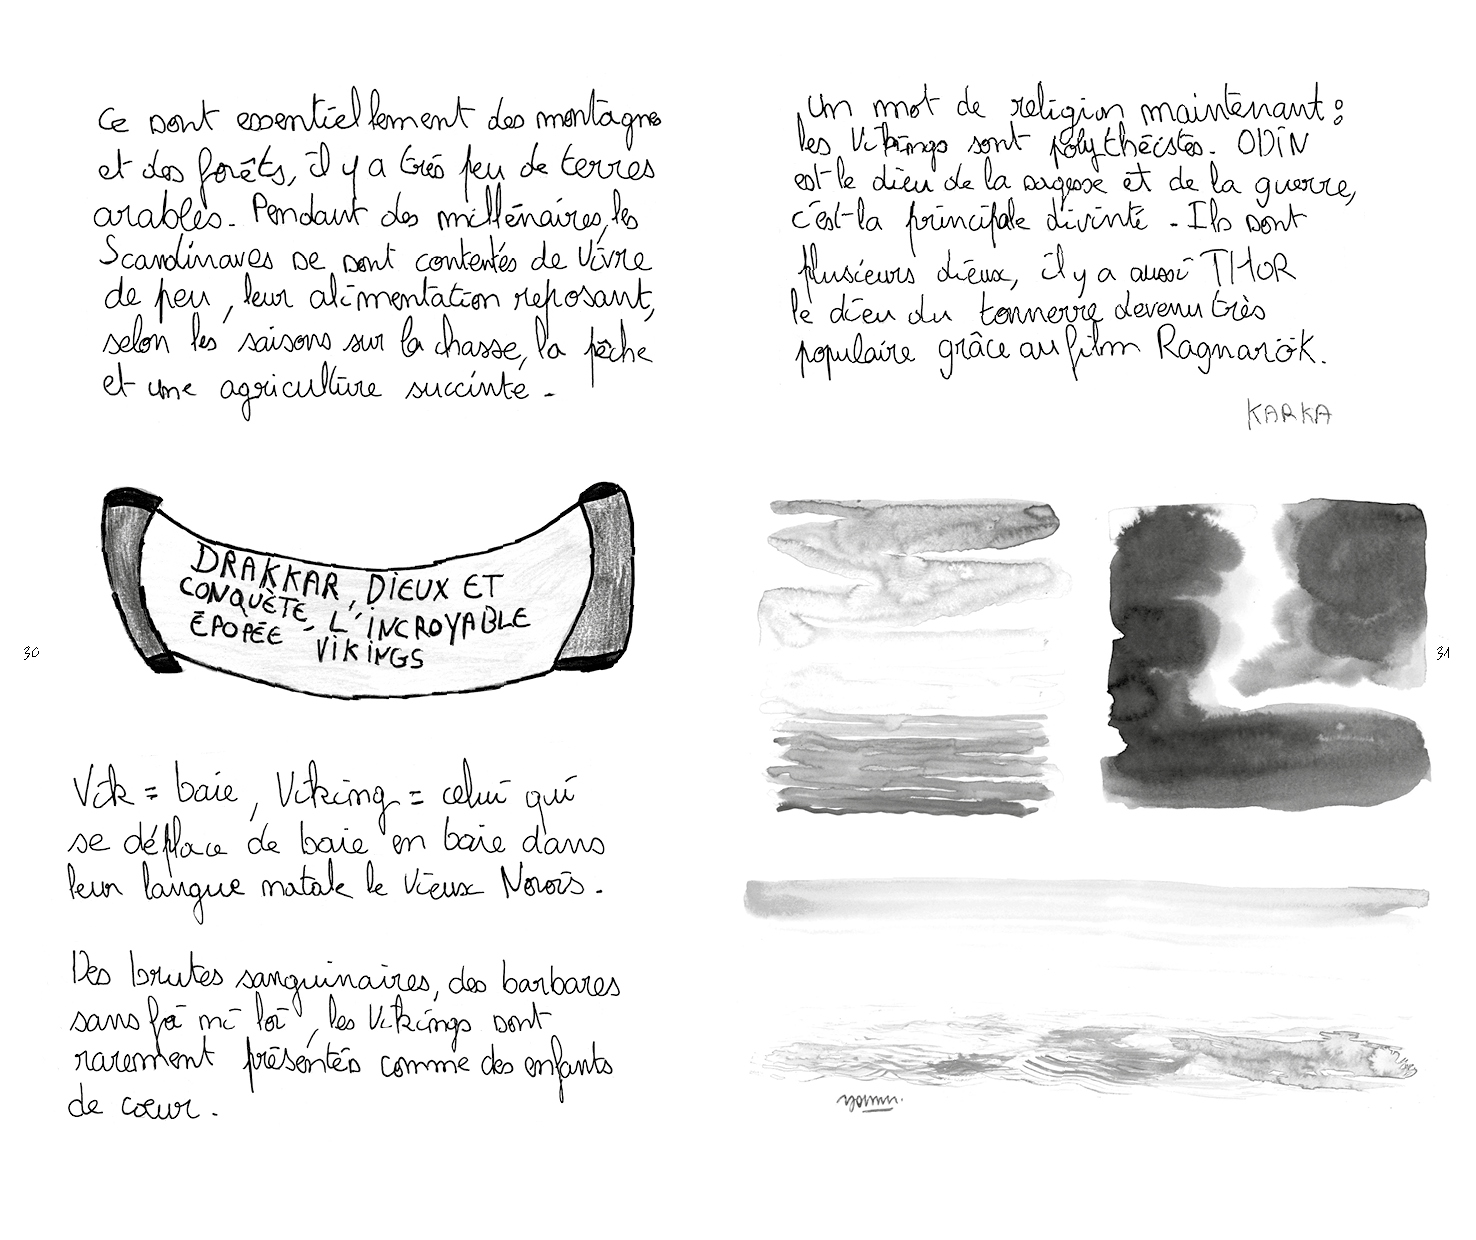 ce sont essentiellement des montagnes
et des forêts, il y a très peu de terres
arables. Pendant des millénaires, les
Scandinaves se sont contentés de vivre
de peu, leur alimentation reposant,
selon les saisons sur la chasse, la pêche
et une agriculture succinte.
DRAKKAR, DIEUX ET
CONQUÊTE, L'INCROYABLE
ÉPOPÉE VIKINGS
30
Vik = baie, Viking = celui qui
se déplace de baie en baie dans
leur langue natale le Vieux Norois.
Des brutes sanguinaires, des barbares
sans foi ni loi, les Vikings sont
rarement présentés comme des enfants
de cœur.
Un mot de religion maintenant :
les Vikings sont polythéistes. ODIN
est le dieu de la sagesse et de la guerre,
c'est la principale divinté. Ils sont
plusieurs dieux, il y a aussi THOR
le dieu du tonnerre devenu très
populaire grâce au film Ragnarök.
KARKA
31